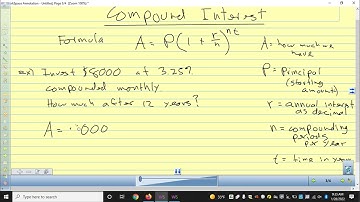 Compound Interest
Formula A = P(1 + r/n)^nt
A = how much we have
P = principal (starting amount)
r = annual interest as decimal
n = compounding periods per year
t = time in years
ex) Invest $8000 at 3.25%
compounded monthly
How much after 12 years?
A = 8000
Type here to search
9:33 AM